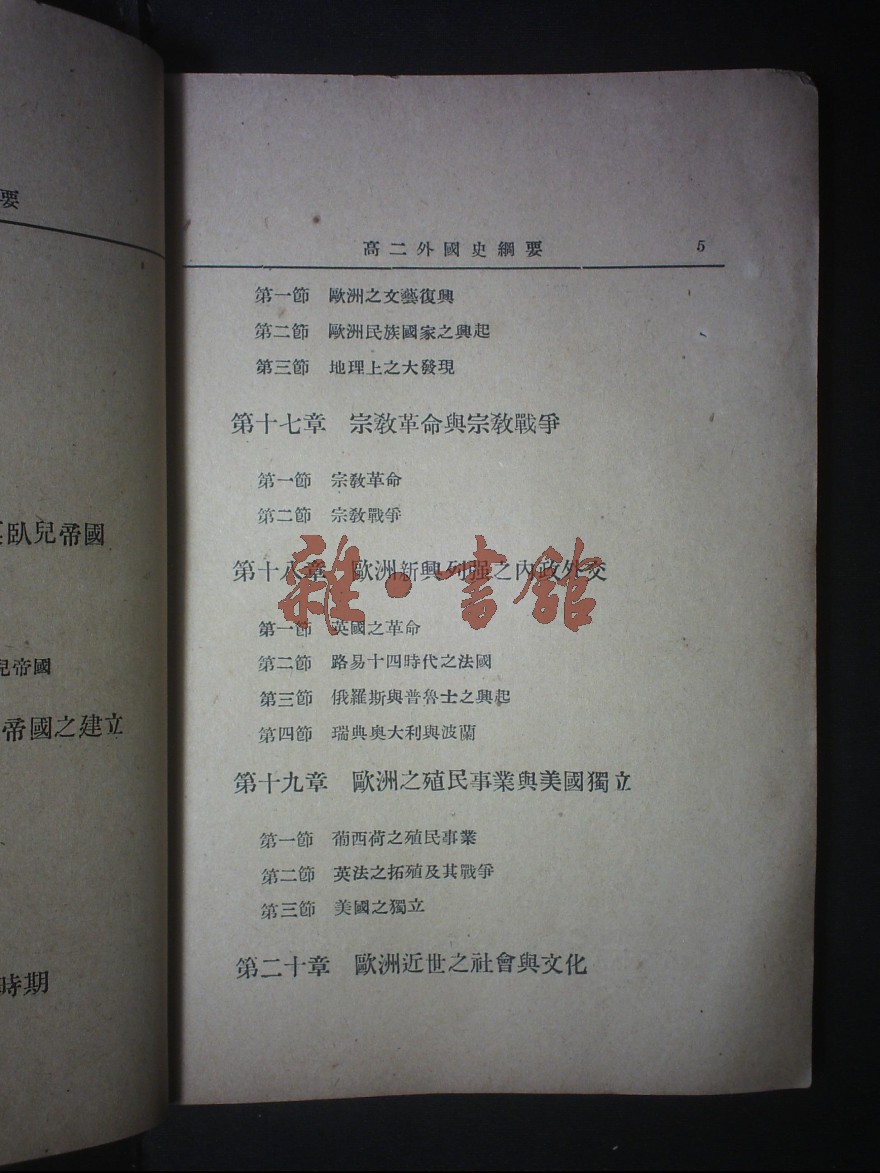 要
臥兒帝國
兒帝國
帝國之建立
時期
高二外國史綱要 5
第一節 歐洲之文藝復興
第二節 歐洲民族國家之興起
第三節 地理上之大發現
第十七章 宗教革命與宗教戰爭
第一節 宗教革命
第二節 宗教戰爭
第十八章 歐洲新興列强之內政外交
雜·書館
第一節 英國之革命
第二節 路易十四時代之法國
第三節 俄羅斯與普魯士之興起
第四節 瑞典奧大利與波蘭
第十九章 歐洲之殖民事業與美國獨立
第一節 葡西荷之殖民事業
第二節 英法之拓殖及其戰爭
第三節 美國之獨立
第二十章 歐洲近世之社會與文化